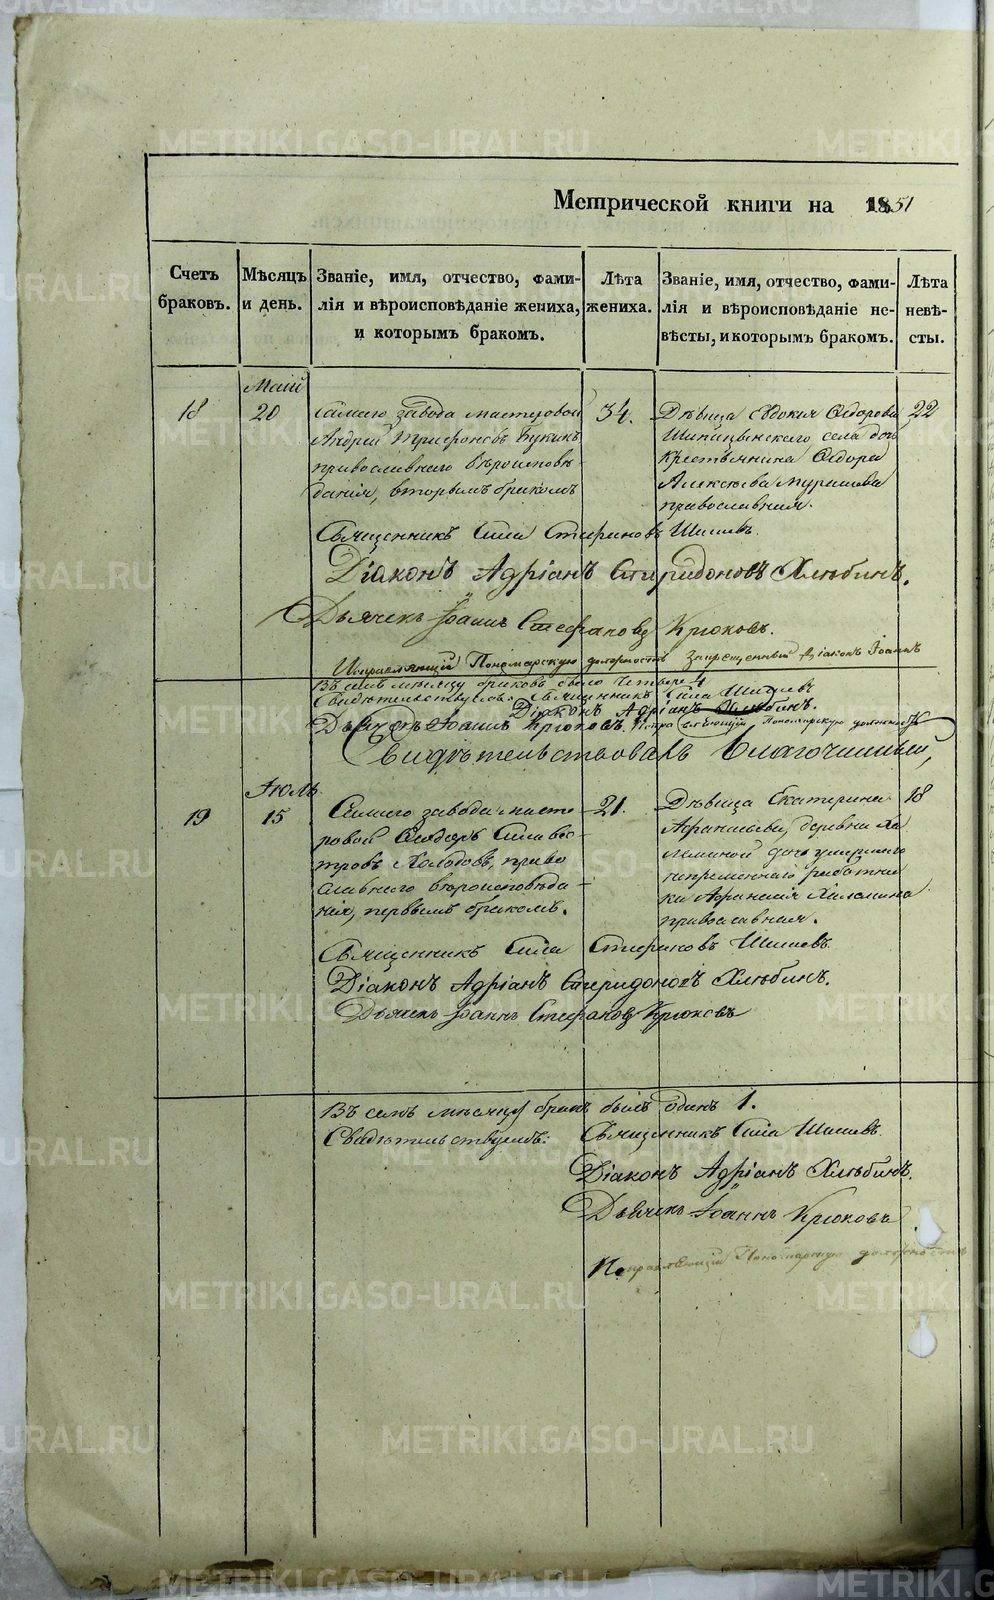 METRIKI.GASO-URAL.RU
Метрической книги на 1851
Счетъ браковъ.
Мѣсяцъ и день.
Званіе, имя, отчество, фами-
лія и вѣроисповѣданіе жениха,
и которымъ бракомъ.
Лѣта жениха.
Званіе, имя, отчество, фами-
лія и вѣроисповѣданіе не-
вѣсты, и которымъ бракомъ.
Лѣта невѣ-
сты.
Маій
18
20
Самаго завода мастеровой
Андрей Трифоновъ
православнаго вѣроисповѣ-
данія, вторымъ бракомъ
34.
Дѣвица Евдокія Ѳедорова
села дочь
крестьянина Ѳедора
Алексѣева
православная.
22
Священникъ Сила Стефановъ Шишевъ.
Діаконъ Адріанъ Спиридоновъ Хлѣбинъ.
Дьячекъ Іоаннъ Стефановъ Крюковъ.
Исправляющій Пономарскую должность Запрещенный Діаконъ Іоаннъ
Въ семъ мѣсяцѣ браковъ было четыре 4
Свидѣтельствуемъ: Священникъ Сила Шишевъ
Діаконъ Адріанъ Хлѣбинъ.
Дьячекъ Іоаннъ Крюковъ. Исправляющій Пономарскую должность
Свидѣтельствовалъ Благочинный,
Іюль
19
15
Самаго завода масте-
ровой Ѳедоръ Сильвес-
тровъ Холодовъ, право-
славнаго вѣроисповѣда-
нія, первымъ бракомъ.
21.
Дѣвица Екатерина
Афанасьева, деревни
дочь умершаго
непремѣннаго работни-
ка Афанасія
православная.
18
Священникъ Сила Стефановъ Шишевъ.
Діаконъ Адріанъ Спиридоновъ Хлѣбинъ.
Дьячекъ Іоаннъ Стефановъ Крюковъ
Въ семъ мѣсяцѣ бракъ былъ одинъ 1.
Свидѣтельствуемъ: Священникъ Сила Шишевъ.
Діаконъ Адріанъ Хлѣбинъ.
Дьячекъ Іоаннъ Крюковъ
Исправляющій Пономарскую должность